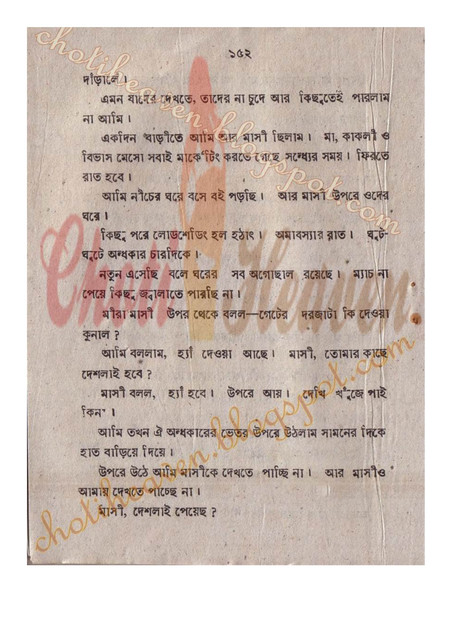 ১৫২
দাঁড়ালে।
এমন যাদের দেখতে, তাদের না চুদে আর কিছুতেই পারলাম
না আমি।
একদিন বাড়ীতে আমি আর মাসী ছিলাম। মা, কাকলী ও
বিভাস মেসো সবাই মার্কেটিং করতে গেছে সন্ধ্যের সময়। ফিরতে
রাত হবে।
আমি নীচের ঘরে বসে বই পড়ছি। আর মাসী উপরে ওদের
ঘরে।
কিছু পরে লোডশেডিং হল হঠাৎ। অমাবস্যার রাত। ঘুট-
ঘুটে অন্ধকার চারদিকে।
নতুন এসেছি বলে ঘরের সব অগোছাল রয়েছে। ম্যাচ না
পেয়ে কিছু জ্বালাতে পারছি না।
মীরা মাসী উপর থেকে বলল—গেটের দরজাটা কি দেওয়া
কুনাল?
আমি বললাম, হ্যাঁ দেওয়া আছে। মাসী, তোমার কাছে
দেশলাই হবে?
মাসী বলল, হ্যাঁ হবে। উপরে আয়। দেখি খুঁজে পাই
কিনা।
আমি তখন ঐ অন্ধকারের ভেতর উপরে উঠলাম সামনের দিকে
হাত বাড়িয়ে দিয়ে।
উপরে উঠে আমি মাসীকে দেখতে পাচ্ছি না। আর মাসীও
আমায় দেখতে পাচ্ছে না।
মাসী, দেশলাই পেয়েছ?
chotiheaven.blogspot.com
Choti Heaven.
chotiheaven.blogspot.com